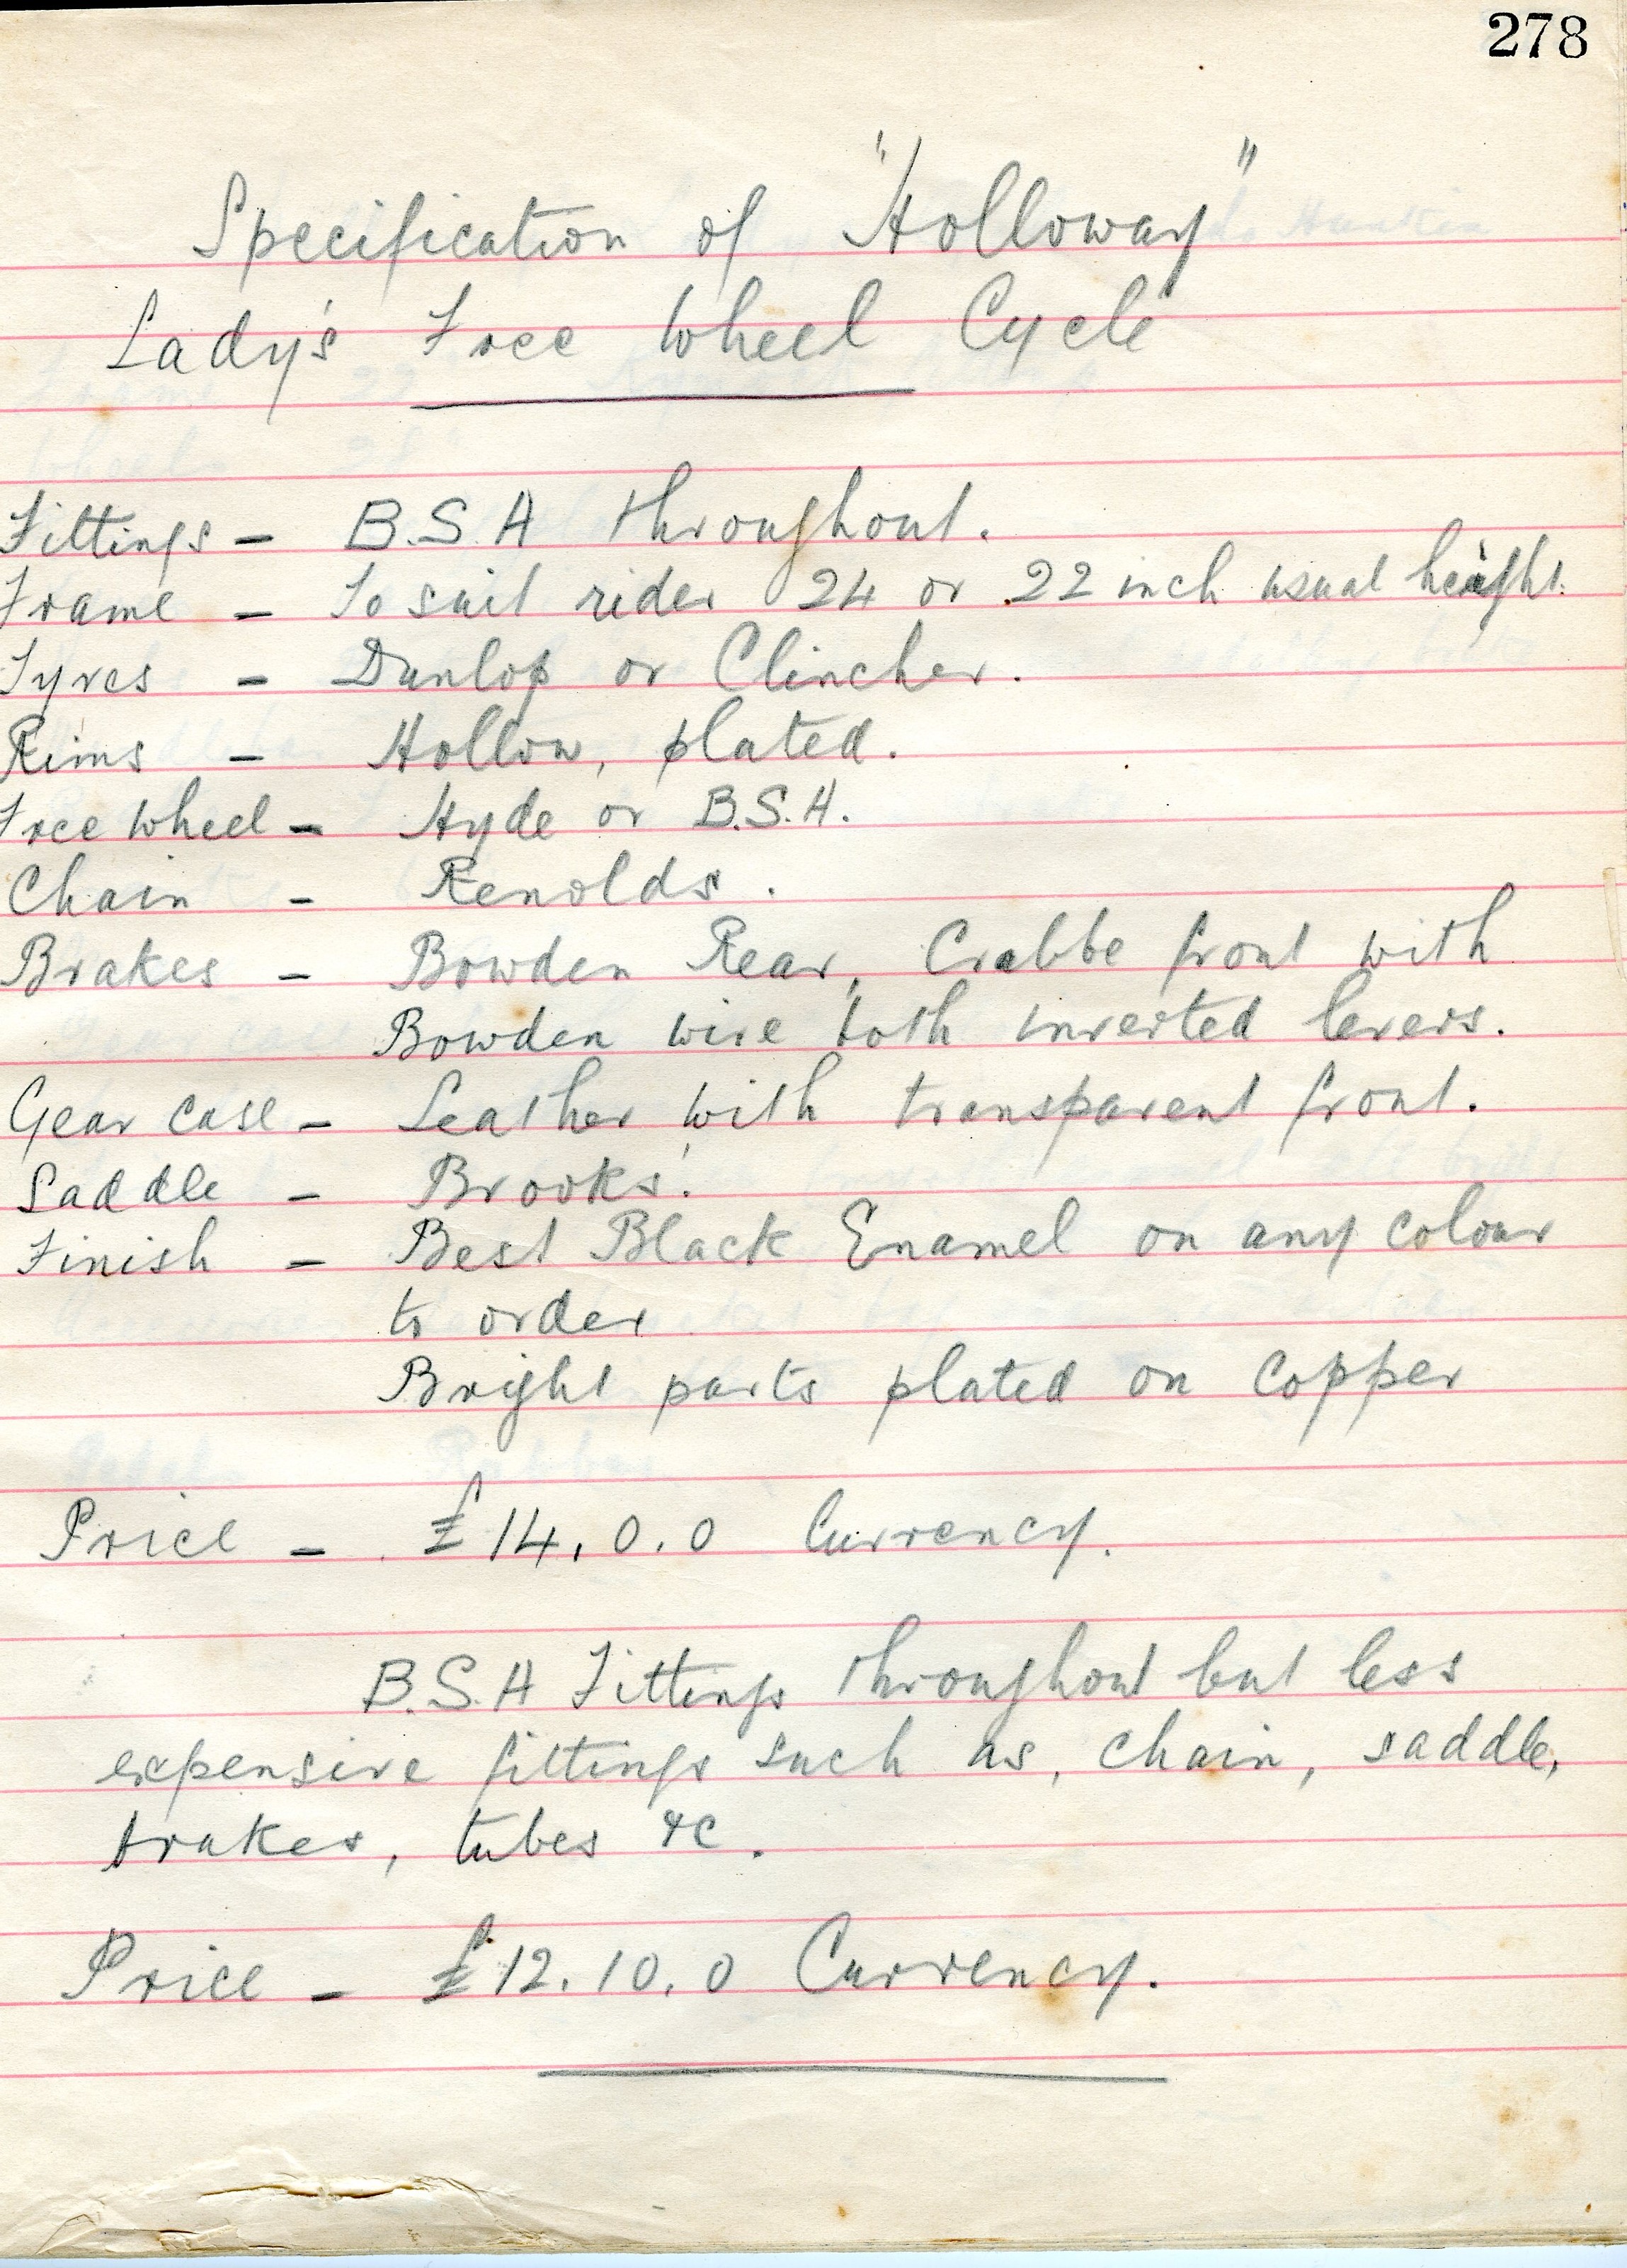 278
Specification of "Holloway"
Lady's Free Wheel Cycle
Fittings - B.S.A throughout.
Frame - To suit rider 24 or 22 inch usual height.
Tyres - Dunlop or Clincher.
Rims - Hollow, plated.
Free Wheel - Hyde or B.S.A.
Chain - Renolds.
Brakes - Bowden Rear, Crabbe front with
Bowden wire both inverted levers.
Gear case - Leather with transparent front.
Saddle - Brooks'.
Finish - Best Black Enamel on any colour
to order
Bright parts plated on Copper
Price - £14.0.0 Currency.
B.S.A Fittings throughout but less
expensive fittings such as, chain, saddle,
brakes, tubes &c.
Price - £12.10.0 Currency.